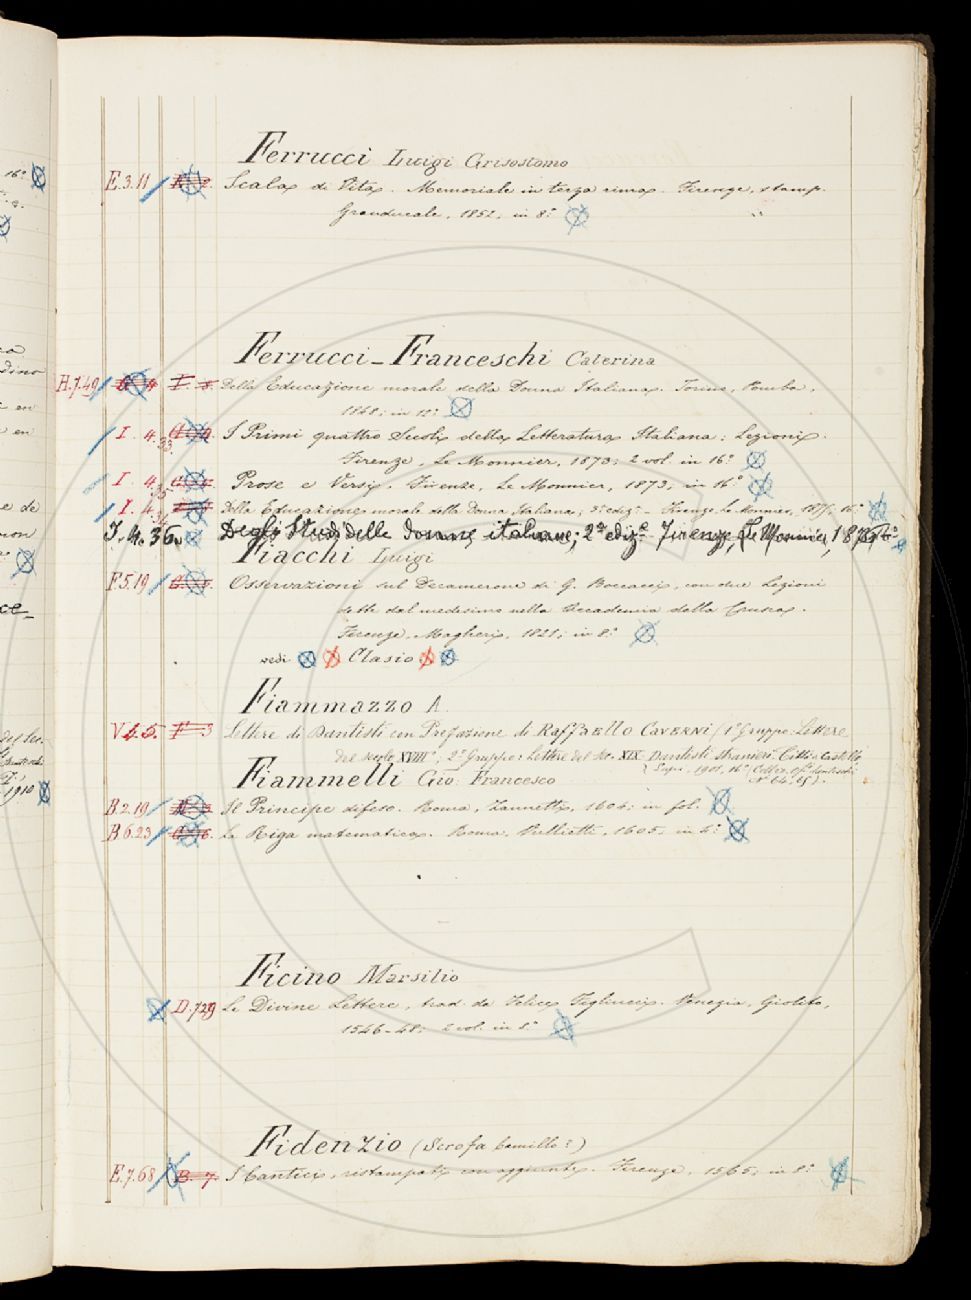 Ferrucci Luigi Grisostomo
E.3.11 Scala di Vita. Memoriale in terza rima. Firenze, stamp.
Granducale, 1852, in 8.°
Ferrucci-Franceschi Caterina
H.7.49 Della Educazione morale della Donna Italiana. Torino, Pomba,
1848; in 12.°
I. 4. 33. I Primi quattro Secoli della Letteratura Italiana: Lezioni.
Firenze, Le Monnier, 1873; 2 vol. in 16.°
I. 4. 35 Prose e Versi. Firenze, Le Monnier, 1873; in 16.°
I. 4. 34 Della Educazione morale della Donna Italiana; 3.ª ediz. - Firenze, Le Monnier, 1877; 16.°
I. 4. 36. Degli Studi delle Donne italiane; 2.ª ediz.e Firenze, Le Monnier, 1876
Fiacchi Luigi
F.5.19 Osservazioni sul Decamerone di G. Boccacci, con due Lezioni
dette dal medesimo nella Accademia della Crusca.
Firenze, Magheri, 1821; in 8.°
vedi Clasio
Fiammazzo A.
V. 5. Lettere di Dantisti con Prefazione di Raffaello Caverni (1° Gruppo: Lettere
del secolo XVIII°; 2° Gruppo: Lettere del Sec. XIX. Dantisti stranieri. Città di Castello,
Lapi, 1901, 16.° (Collez. Op. dantesche
N.° 64, 65).
Fiammelli Gio: Francesco
B.2.19 Il Principe difeso. Roma, Zannetti, 1604; in fol.
B.6.23 La Riga matematica. Roma, Zullietti, 1605; in 4.°
Ficino Marsilio
D.729 Le Divine Lettere, trad. da Felice Figliucci. Venezia, Giolito,
1546-48; 2 vol. in 8.°
Fidenzio (Scrofa Camillo?)
E.7.68 I Cantici, ristampati con aggiunta. Firenze, 1565; in 8.°